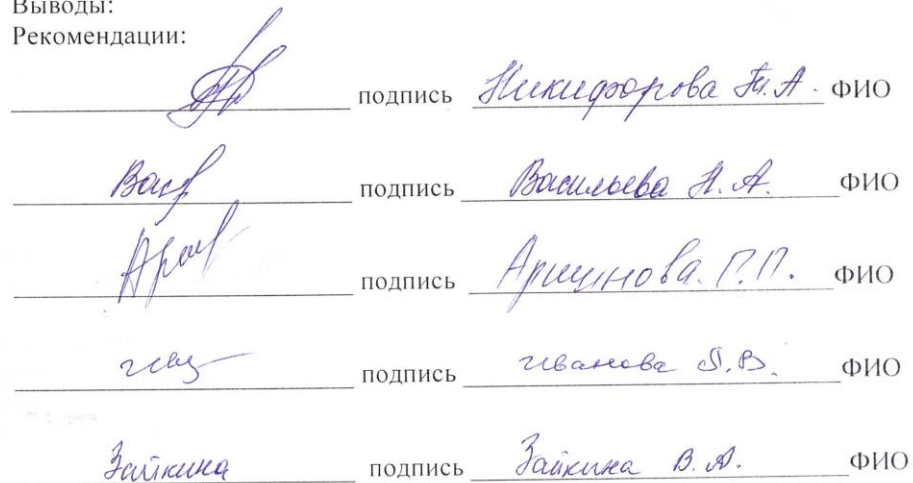 Выводы:
Рекомендации:
подпись Никифорова Т.А. ФИО
Вас подпись Васильева Н.А. ФИО
подпись Аршинова Г.П. ФИО
подпись Иванова Л.В. ФИО
Зайкина подпись Зайкина В.А. ФИО